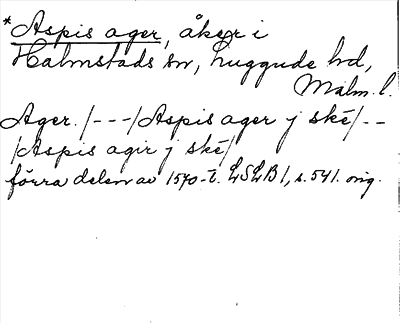 *Aspis ager, åker i
Halmstads sn, Luggude hd,
Malm. l.
Ager. /---/Aspis ager j ské/--
/Aspis agir j ské/
förra delen av 1570-t. LSLB1, s. 541. orig.